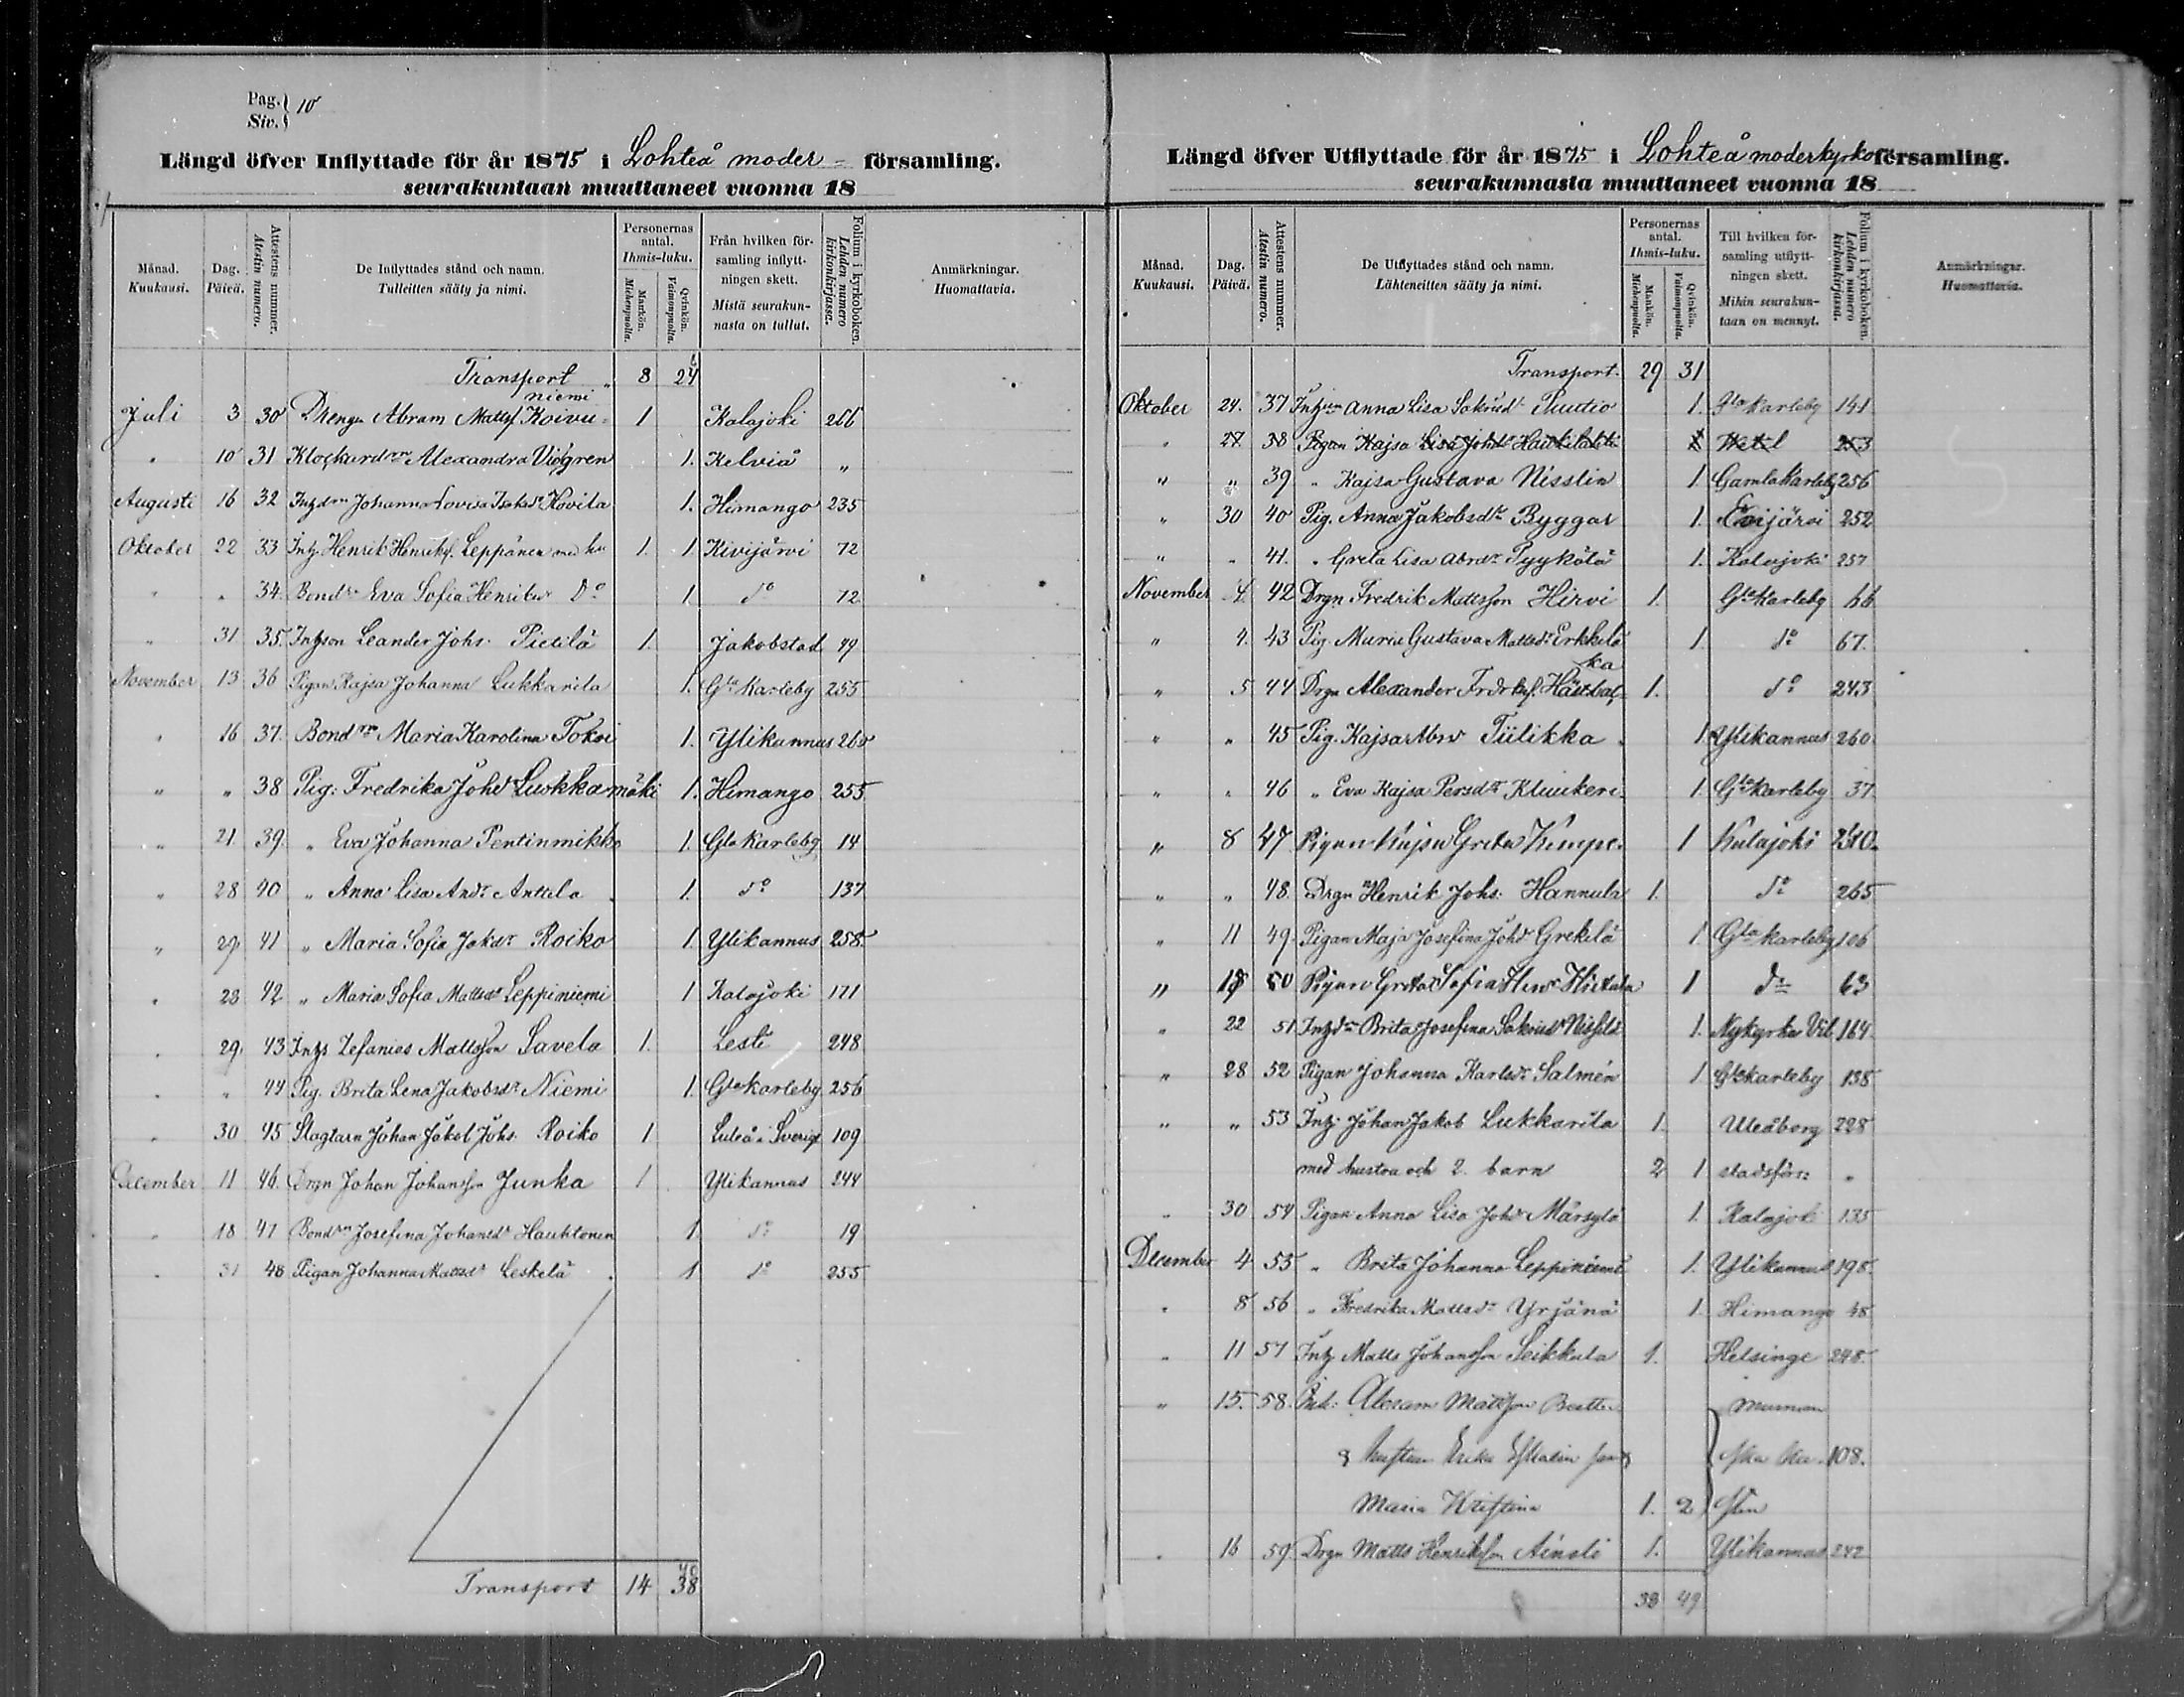 Pag. } 10
Siv. }
Längd öfver Inflyttade för år 1875 i Lohteå moder- församling.
seurakuntaan muuttaneet vuonna 18
Månad. Kuukausi. Dag. Päivä. Attestens nummer. Atestin numero. De Inflyttades stånd och namn. Tulleitten sääty ja nimi. Personernas antal. Ihmis-luku. Mankön. Miehenpuolta. Qvinkön. Vaimonpuolta. Från hvilken församling inflyttningen skett. Mistä seurakunnasta on tullut. Folium i kyrkoboken. Lehden numero kirkonkirjassa. Anmärkningar. Huomattavia.
Transport 8 24
niemi
Juli 3 30 Drengen Abram Mattss. Koivu- 1 Kalajoki 266
" 10 31 Klockard:rn Alexandra Viögren 1. Kelviå "
Augusti 16 32 Inhyd:rn Johanna Lovisa Isaksd:r Hovila 1. Himango 235
Oktober 22 33 Inh. Henrik Henrikss. Leppänen med hu 1. 1 Kivijärvi 72
" " 34. Bond:rn Eva Sofia Henriksd:r D:o 1 d:o 72
" 31 35. Inhyson Leander Johs. Pietilä 1. Jakobstad 49
November 13 36 Pigan Kajsa Johanna Lukkarila 1. Gla Karleby 255
" 16 37. Bond:rn Maria Karolina Tokoi 1. Ylikannus 260
" " 38 Pig: Fredrika Johd Luokkamäki 1. Himango 255
" 21 39. " Eva Johanna Pentinmikko 1. Gla Karleby 14
" 28 40 " Anna Lisa And:r Anttila 1. d:o 137
" 29 41 " Maria Sofia Jakd:r Roiko 1 Ylikannus 258.
" 23 42 " Maria Sofia Mattsd:r Leppiniemi 1 Kalajoki 171
" 29. 43 Inhys Zefanias Mattsson Savela 1. Lesti 248
" " 44 Pig. Brita Lena Jakobsd:r Niemi 1. Gla Karleby 256
" 30 45 Slagtarn Johan Jakob Johs. Roiko 1 Luleå i Sverige 109
December 11 46. Drgn Johan Johansson Junka 1 Ylikannus 244
" 18 47 Bond:rn Josefina Johansd:r Hauhtonen 1 d:o 19
" 31 48 Pigan Johanna Mattsd:r Leskelä 1 d:o 255
Transport 14 38
40
Längd öfver Utflyttade för år 1875 i Lohteå moderkyrko församling.
seurakunnasta muuttaneet vuonna 18
Månad. Kuukausi. Dag. Päivä. Attestens nummer. Atestin numero. De Utflyttades stånd och namn. Lähteneitten sääty ja nimi. Personernas antal. Ihmis-luku. Mankön. Miehenpuolta. Qvinkön. Vaimonpuolta. Till hvilken församling utflyttningen skett. Mihin seurakuntaan on mennyt. Folium i kyrkoboken. Lehden numero kirkonkirjassa. Anmärkningar. Huomattavia.
Transport. 29 31
Oktober 24. 37 Anna Lisa Sakrisd:r 1. Gla Karleby 141
" 27 38 Pigan Kajsa Lisa Johsd:r Haukilahti 1 Wetil 253
" " 39 " Kajsa Gustava Nisslin 1 Gamlakarleby 256
" 30 40 Pig. Anna Jakobsd:r Byggar 1. Evijärvi 252
" " 41. " Greta Lisa Abrd:r Pyykölä 1. Kalajoki 257
November 4. 42 Drgn Fredrik Mattsson Hirvi 1. Gla Karleby 66
" 4. 43 Pig. Maria Gustava Mattsd:r Erkkilä 1 d:o 67.
ka
" 5 44 Drgn Alexander Fredrikss. 1. d:o 243
" " 45 Pig. Kajsa Abr:r Tiilikka 1 Ylikannus 260.
" " 46 " Eva Kajsa Persd:r Klunkeri 1. Gla Karleby 37.
" 8 47 Pigan Kajsa Greta Kimpe. 1 Kalajoki 210.
" " 48. Drgn Henrik Johs. Hannula 1. d:o 265
" 11 49. Pigan Maja Josefina Johd:r Grekilä 1 Gla Karleby 106
" 18 50 Pigan Greta Sofia Hend:r Hietala 1 d:o 63
" 22 51 Inhyd:rn Brita Josefina Sakrisd:r 1. Nykyrka Vib. 164.
" 28 52 Pigan Johanna Karlsd:r Salmén 1 Gla karleby 138
" " 53 Inh: Johan Jakob Lukkarila 1. Uleåborg 228
med hustru och 2. barn 2 1 stadsför: "
" 30 54 Pigan Anna Lisa Johd:r Märsylä 1. Kalajoki 135
December 4 55 " Brita Johanna Leppiniemi 1. Ylikannus 198.
" 8 56 " Fredrika Mattsd:r Yrjänä 1. Himango 48
" 11 57 Inh Matts Johansson Seikkala 1. Helsinge 248.
" 15. 58. Abram Mattsson Murman
& hustrun Erika ska ku- 108.
Maria Kristina 1. 2 sten
" 16 59. Drgn Matts Henriksson Ainali 1. Ylikannus 242
38 49